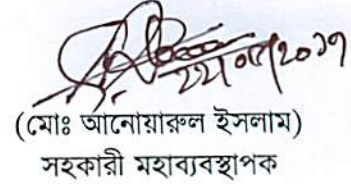 ২২/০৫/২০১৭
(মোঃ আনোয়ারুল ইসলাম)
সহকারী মহাব্যবস্থাপক